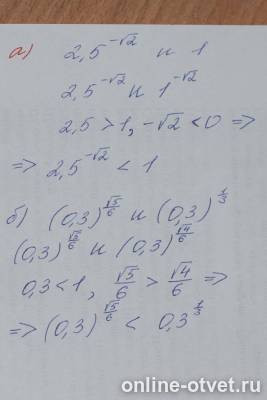 а) 2,5^{-√2} и 1
2,5^{-√2} и 1^{-√2}
2,5 > 1, -√2 < 0 =>
=> 2,5^{-√2} < 1
б) (0,3)^{√5/6} и (0,3)^{1/3}
(0,3)^{√5/6} и (0,3)^{√4/6}
0,3 < 1, √5/6 > √4/6 =>
=> (0,3)^{√5/6} < 0,3^{1/3}
online-otvet.ru